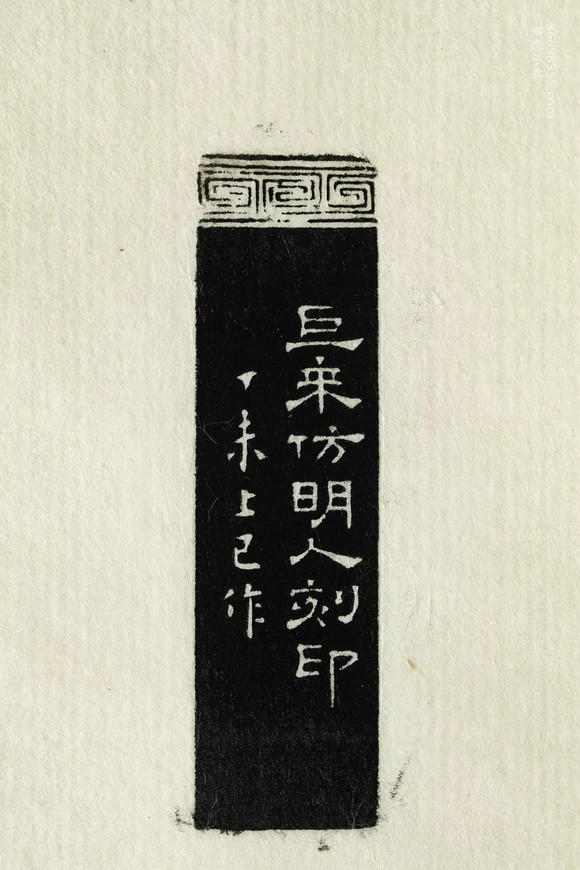 巨來仿明人刻印
丁未上巳作